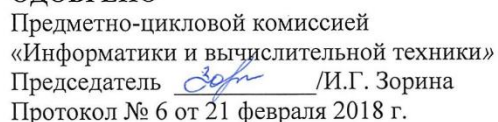 ОДОБРЕНО
Предметно-цикловой комиссией
«Информатики и вычислительной техники»
Председатель /И.Г. Зорина
Протокол № 6 от 21 февраля 2018 г.